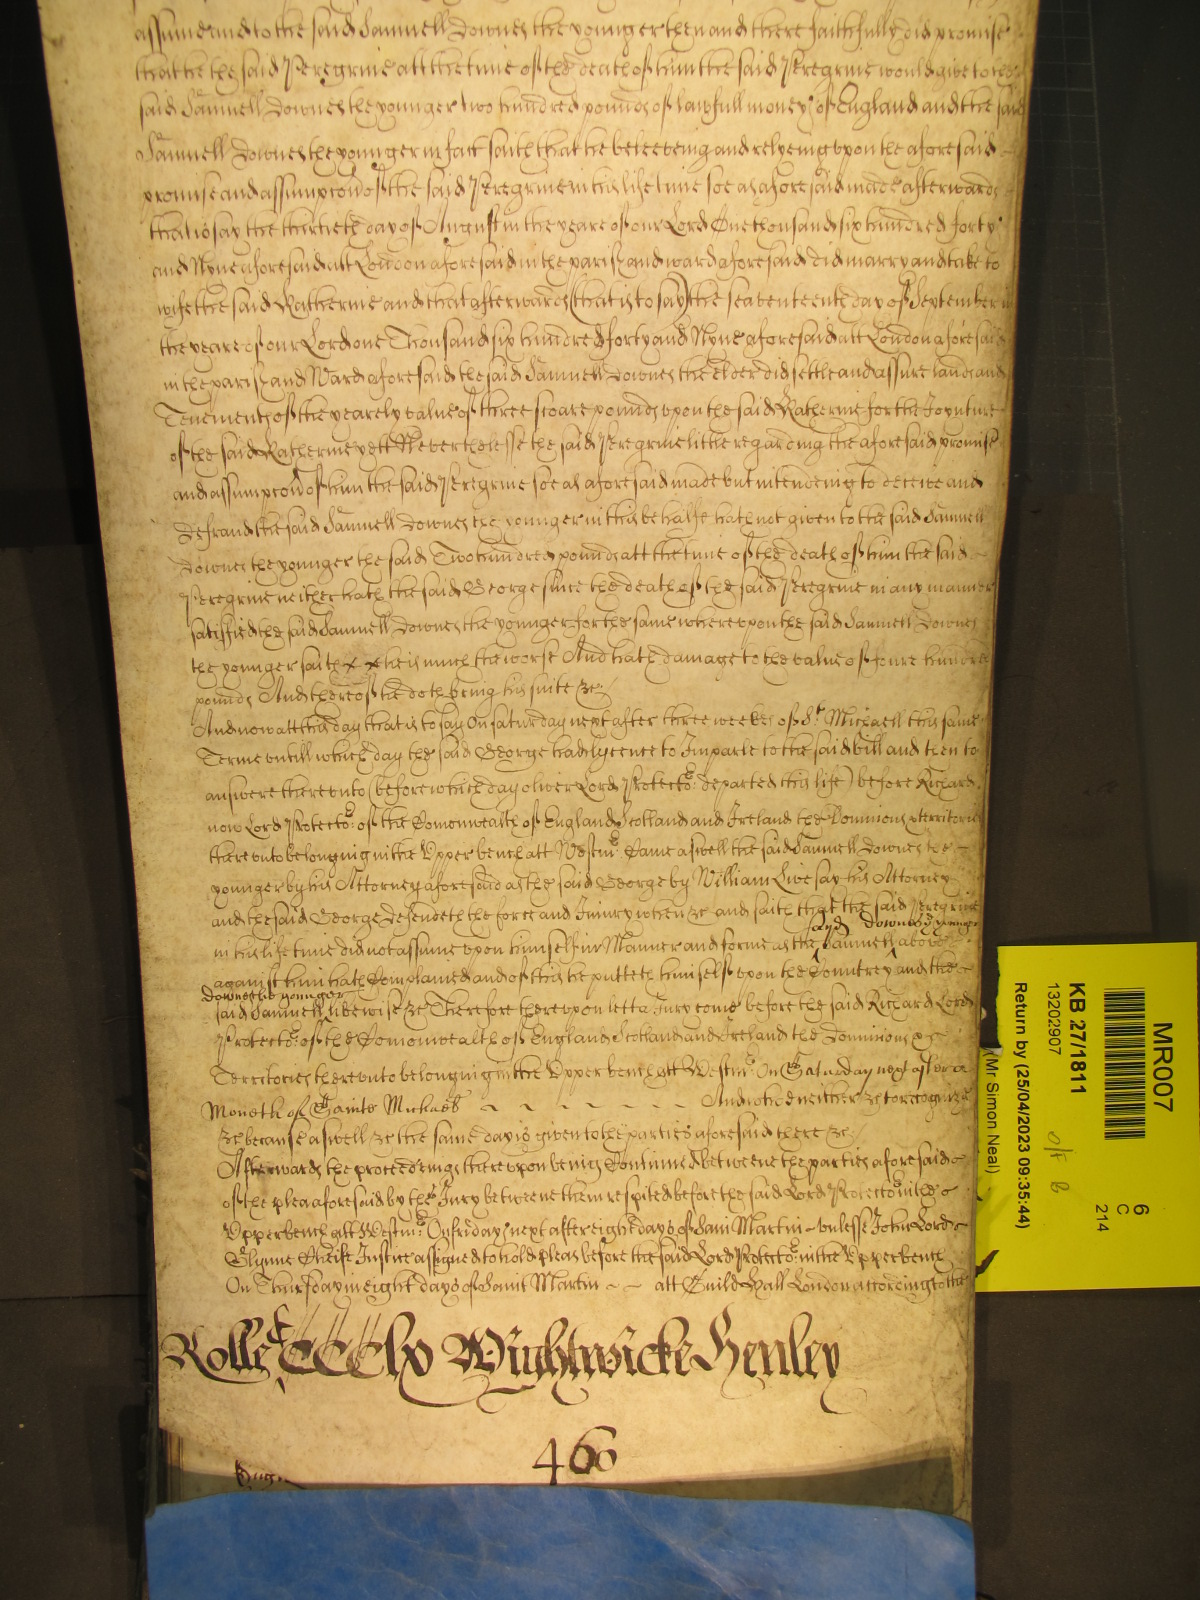 assume and to the said Samuell Downes the younger then and there faithfully did promise
that he the said Peregrine att the time of the death of him the said Peregrine would give to the
said Samuell Downes the younger two hundred pounds of lawfull money of England and the said
Samuell Downes the younger in fact saith that he beleeveing and relyeing upon the aforesaid
promise and assumpcon of the said Peregrine in his life time soe as aforesaid made afterwards
that is say the thirtieth day of August in the yeare of our Lord One thousand six hundred forty
and Nyne aforesaid att London aforesaid in the parish and ward aforesaid did marry and take to
wife the said Katherine and that afterwards (that is to say) the seaventeenth day of September in
the yeare of our Lord one Thousand six hundred forty and Nyne aforesaid att London aforesaid
in the parish and Ward aforesaid the said Samuell Downes the elder did settle and assure lands and
Tenements of the yearely value of three scoare pounds upon the said Katherine for the Joynture
of the said Katherine yett Neverthelesse the said Peregrine little regarding the aforesaid promise
and assumpcon of him the said Peregrine soe as aforesaid made but intendeing to deceive and
defraud the said Samuell Downes the younger in this behalfe hath not given to the said Samuell
Downes the younger the said Two hundred pounds att the time of the death of him the said
Peregrine neither hath the said George since the death of the said Peregrine in any manner
satisfied the said Samuell Downes the younger for the same whereupon the said Samuell Downes
the younger saith he is much the worse And hath damage to the value of foure hundred
pounds And thereof he doth bring his suite &c
And now att this day that is to say On Saturday next after three weekes of St Michaell this same
Terme untill which day the said George had lycence to Imparle to the said bill and then to
answere thereunto (before which day Oliver Lord Protector departed this life) before Richard
now Lord Protector of the Comonwealth of England Scotland and Ireland the Dominions & territories
thereunto belonging in the Upper bench att Westmr Came aswell the said Samuell Downes the
younger by his Attorney aforesaid as the said George by William Livesay his Attorney
and the said George defendeth the force and Injury when &c and saith that the said Peregrine
said Downes the younger
in his life time did not assume upon himself in Manner and forme as the Samuell above
against him hath Complained and of this he putteth himself upon the Countrey and the
Downes the younger
said Samuell likewise &c Therefore thereupon lett a Jury come before the said Richard Lord
Protector of the Comonwealth of England Scotland and Ireland the Dominions &
Territories thereunto belonging in the Upper bench att Westmr On Saturday next after a
Moneth of Sainte Michael And who neither &c to recognize
&c because aswell &c the same day is given to the parties aforesaid there &c
Afterwards the proceedings thereupon being Continued betweene the parties aforesaid
of the plea aforesaid by the Jury betweene them respited before the said Lord Protector in the
Upper bench att Westmr On friday next after eight days of Saint Martin unlesse John Lord
Glynne Cheife Justice assigned to hold pleas before the said Lord Protector in the Upper bench
On Thursday in eight days of Saint Martin att Guild Hall London according to the
Rolle CCCClx Wightwicke Henley
460
MR007
KB 27/1811
13202907
Return by (25/04/2023 09:35:44)
(Mr Simon Neal)
6
C
214